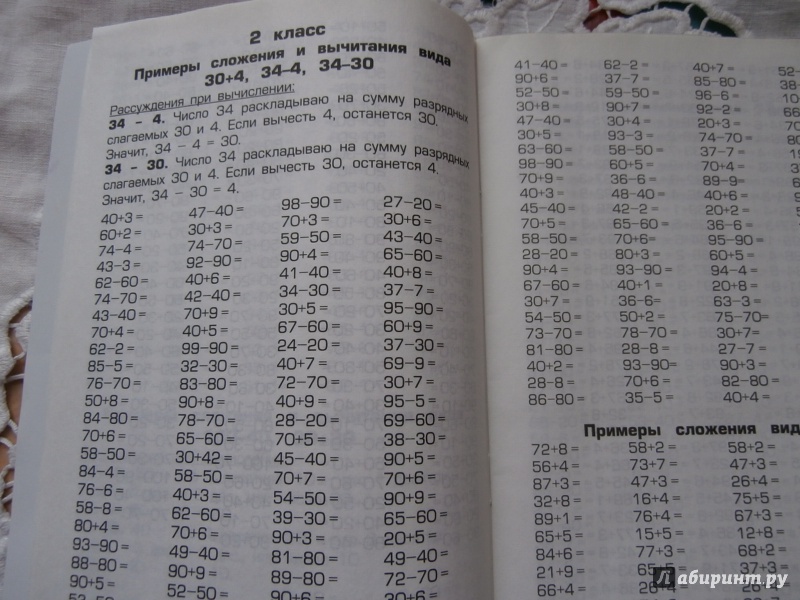 2 класс
Примеры сложения и вычитания вида
30+4, 34–4, 34–30
Рассуждения при вычислении:
34 – 4. Число 34 раскладываю на сумму разрядных
слагаемых 30 и 4. Если вычесть 4, останется 30.
Значит, 34 – 4 = 30.
34 – 30. Число 34 раскладываю на сумму разрядных
слагаемых 30 и 4. Если вычесть 30, останется 4.
Значит, 34 – 30 = 4.
40+3= 47–40= 98–90= 27–20=
60+2= 30+3= 70+3= 30+6=
74–4= 74–70= 59–50= 43–40=
43–3= 92–90= 90+4= 65–60=
62–60= 40+6= 41–40= 40+8=
74–70= 42–40= 34–30= 37–7=
43–40= 70+9= 30+5= 95–90=
70+4= 40+5= 67–60= 60+9=
62–2= 99–90= 24–20= 37–30=
85–5= 32–30= 40+7= 69–9=
76–70= 83–80= 72–70= 30+7=
50+8= 90+8= 40+9= 95–5=
84–80= 78–70= 28–20= 69–60=
70+6= 65–60= 70+5= 38–30=
58–50= 30+42= 45–40= 90+5=
84–4= 58–50= 70+7= 90+6=
76–6= 40+3= 54–50= 90+9=
58–8= 62–60= 39–30= 65–60=
80+4= 70+6= 90+3= 20+5=
93–90= 49–40= 81–80= 49–40=
88–80= 90+9= 89–80= 72–70=
90+5= 52–50=
41–40= 62–2= 40+7= 52–
90+6= 37–7= 85–80= 38–
52–50= 59–50= 96–6=
30+8= 90+7= 92–2=
47–40= 30+4= 20+3=
30+5= 93–3= 74–70=
63–60= 58–50= 37–7=
98–90= 60+5= 70+4=
70+9= 36–6= 89–9=
40+3= 48–40= 40+6=
45–40= 42–2= 20+4=
70+5= 65–60= 36–6=
58–50= 70+6= 95–90=
28–20= 80+3= 60+5=
90+4= 93–90= 94–4=
67–60= 40+1= 20+8=
30+7= 36–6= 63–3=
54–50= 50+2= 75–70=
73–70= 78–70= 30+7=
81–80= 28–8= 27–7=
40+2= 93–90= 90+3=
28–8= 70+6= 82–80=
86–80= 35–5= 40+4=
Примеры сложения вида
72+8= 58+2= 58+2=
56+4= 73+7= 47+3=
87+3= 47+3= 26+4=
32+8= 16+4= 75+5=
89+1= 76+4= 67+3=
65+5= 15+5= 12+8=
84+6= 77+3= 68+2=
21+9= 65+5= 37+3=
66+4= 26+4=
Лабиринт.ру